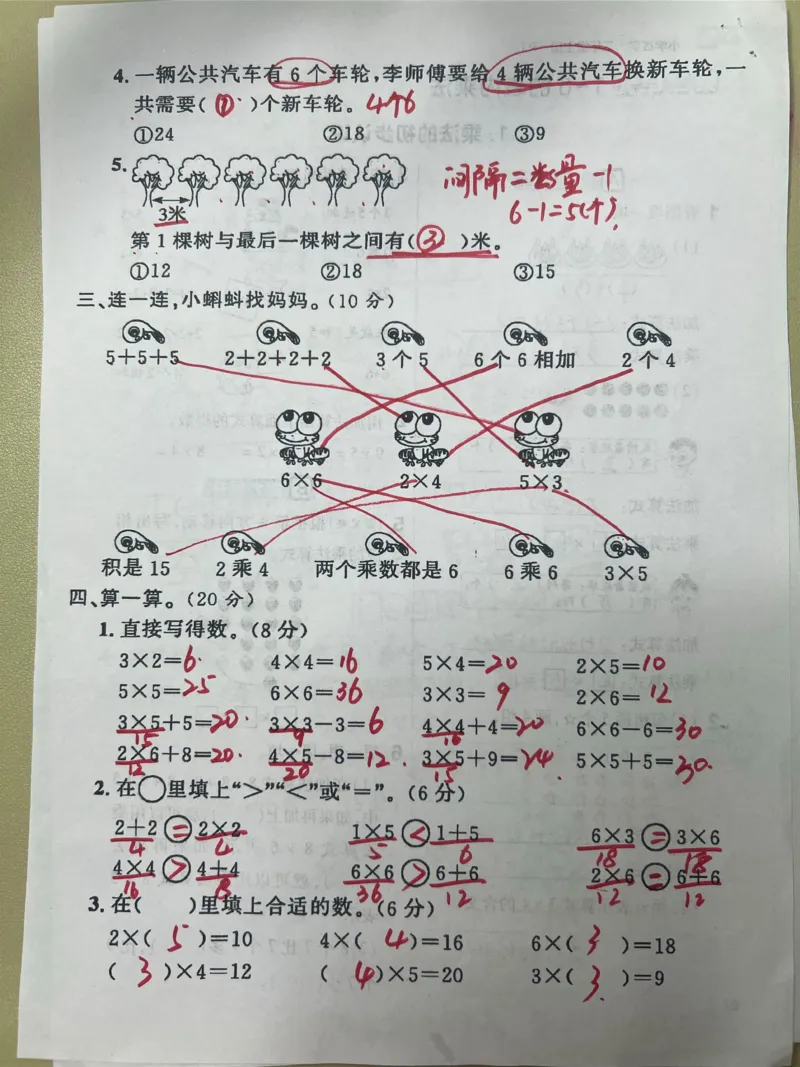 4. 一辆公共汽车有 6 个车轮,李师傅要给 4 辆公共汽车换新车轮,一
共需要( ① )个新车轮。 4个6
①24 ②18 ③9
5.
间隔=数量-1
6-1=5(个)
3米
第 1 棵树与最后一棵树之间有( ③ )米。
①12 ②18 ③15
三、连一连,小蝌蚪找妈妈。(10 分)
5+5+5 2+2+2+2 3 个 5 6 个 6 相加 2 个 4
6×6 2×4 5×3
积是 15 2 乘 4 两个乘数都是 6 6 乘 6 3×5
四、算一算。(20 分)
1. 直接写得数。(8 分)
3×2=6 4×4=16 5×4=20 2×5=10
5×5=25 6×6=36 3×3=9 2×6=12
3×5+5=20 3×3-3=6 4×4+4=20 6×6-6=30
15 9 16
2×6+8=20 4×5-8=12 3×5+9=24 5×5+5=30
12 20 15
2. 在○里填上“>”“<”或“=”。(6 分)
2+2 = 2×2 1×5 < 1+5 6×3 = 3×6
4 4 5 6 18 18
4×4 > 4+4 6×6 > 6+6 2×6 = 6+6
16 8 36 12 12 12
3. 在( )里填上合适的数。(6 分)
2×( 5 )=10 4×( 4 )=16 6×( 3 )=18
( 3 )×4=12 ( 4 )×5=20 3×( 3 )=9